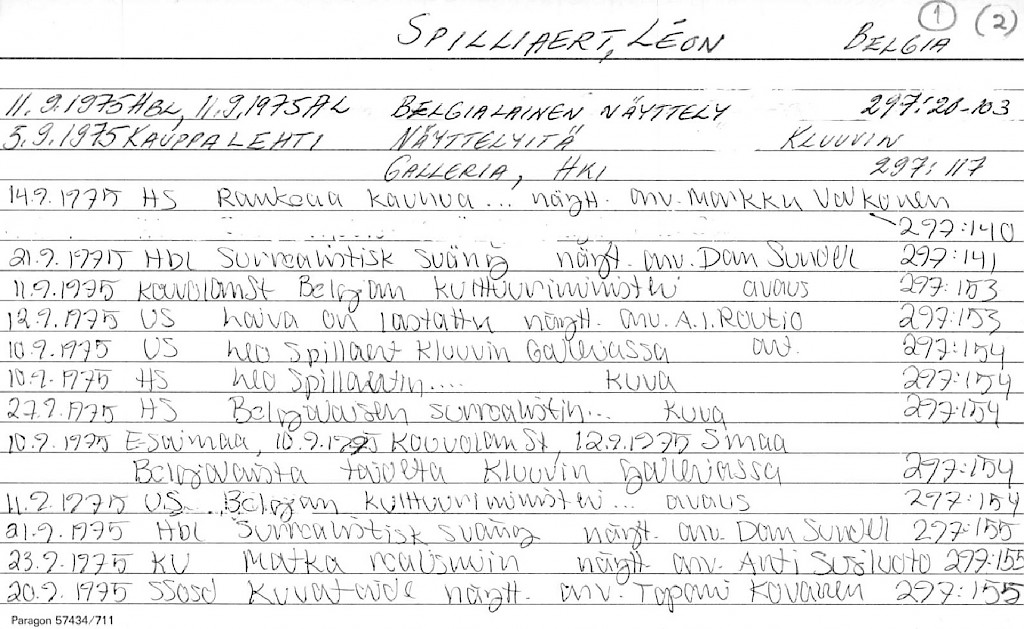 ① (2)
SPILLIAERT, LÉON BELGIA
11.9.1975 HBL, 11.9.1975 AL BELGIALAINEN NÄYTTELY 297:20-103
5.9.1975 KAUPPALEHTI NÄYTTELYITÄ KLUUVIN
GALLERIA, HKI 297:117
14.9.1975 HS Rankeaa kauniva... näytt. arv. Markku Valkonen
297:140
21.9.1975 Hbl Surrealistisk sväng näytt. arv. Dan Sundell 297:141
11.9.1975 KouvolanSt Belgian kulttuuriministeri avaus 297:153
12.9.1975 US laiva on lastattu näytt. arv. A.I. Routio 297:153
10.9.1975 US leo Spillaert Kluuvin Galleriassa art. 297:154
10.9.1975 HS leo Spillaertin.... kuva 297:154
27.9.1975 HS Belgialaisen surrealistin... kuva 297:154
10.9.1975 E-Saimaa, 10.9.1975 Kouvolan St, 12.9.1975 Smaa
Belgialaista taidetta Kluuvin galleriassa 297:154
11.9.1975 US Belgian kulttuuriministeri... avaus 297:154
21.9.1975 Hbl Surrealistisk sväng näytt. arv. Dan Sundell 297:155
23.9.1975 KU Matka realismiin näytt. arv. Antti Susiluoto 297:155
20.9.1975 SSosd Kuvataide näytt. arv. Tapani Kovanen 297:155
Paragon 57434/711